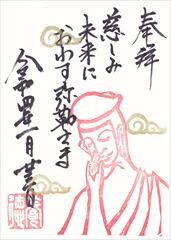 奉拝
慈しみ
未来に
おわす弥勒さま
令和四年一月吉日